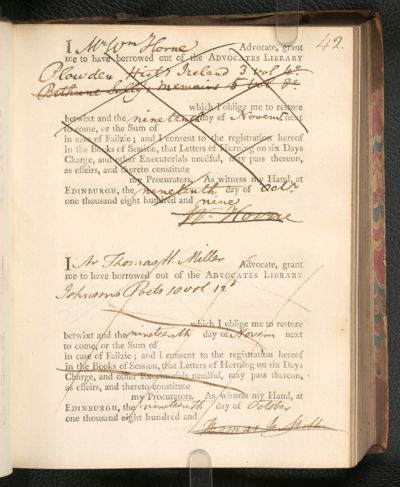 42.
I Mr Wm Horne Advocate, grant
me to have borrowed out of the ADVOCATES LIBRARY
Plowden Histy Ireland 3 vol 4o
Bethune Sully, memoirs 5 vol 8o
which I oblige me to restore
betwixt and the nineteenth day of Novemr next
to come, or the Sum of
in case of Failzie; and I consent to the registration hereof
in the Books of Session, that Letters of Horning on six Days
Charge, and other Executorials needful, may pass thereon,
as effeirs, and thereto constitute
my Procurators. As witness my Hand, at
EDINBURGH, the nineteenth day of Octr
one thousand eight hundred and nine
Wm Horne
I Mr Thomas H. Miller Advocate, grant
me to have borrowed out of the ADVOCATES LIBRARY
Johnsons Poets 10 vol 12o
which I oblige me to restore
betwixt and the nineteenth day of Novem next
to come, or the Sum of
in case of Failzie; and I consent to the registration hereof
in the Books of Session, that Letters of Horning on six Days
Charge, and other Executorials needful, may pass thereon,
as effeirs, and thereto constitute
my Procurators. As witness my Hand, at
EDINBURGH, the nineteenth day of October
one thousand eight hundred and
Thomas H. Miller